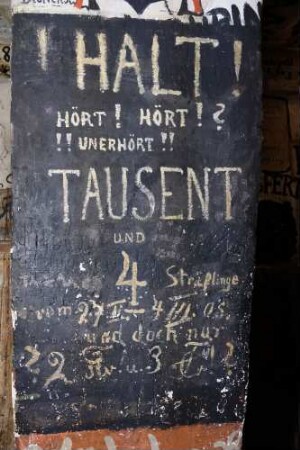 ! HALT !
HÖRT ! HÖRT ! ?
!! UNERHÖRT !!
TAUSENT
UND
4 Sträflinge
vom 27 II – 4 III. 05.
und doch nur
? 2 u. 3 ?